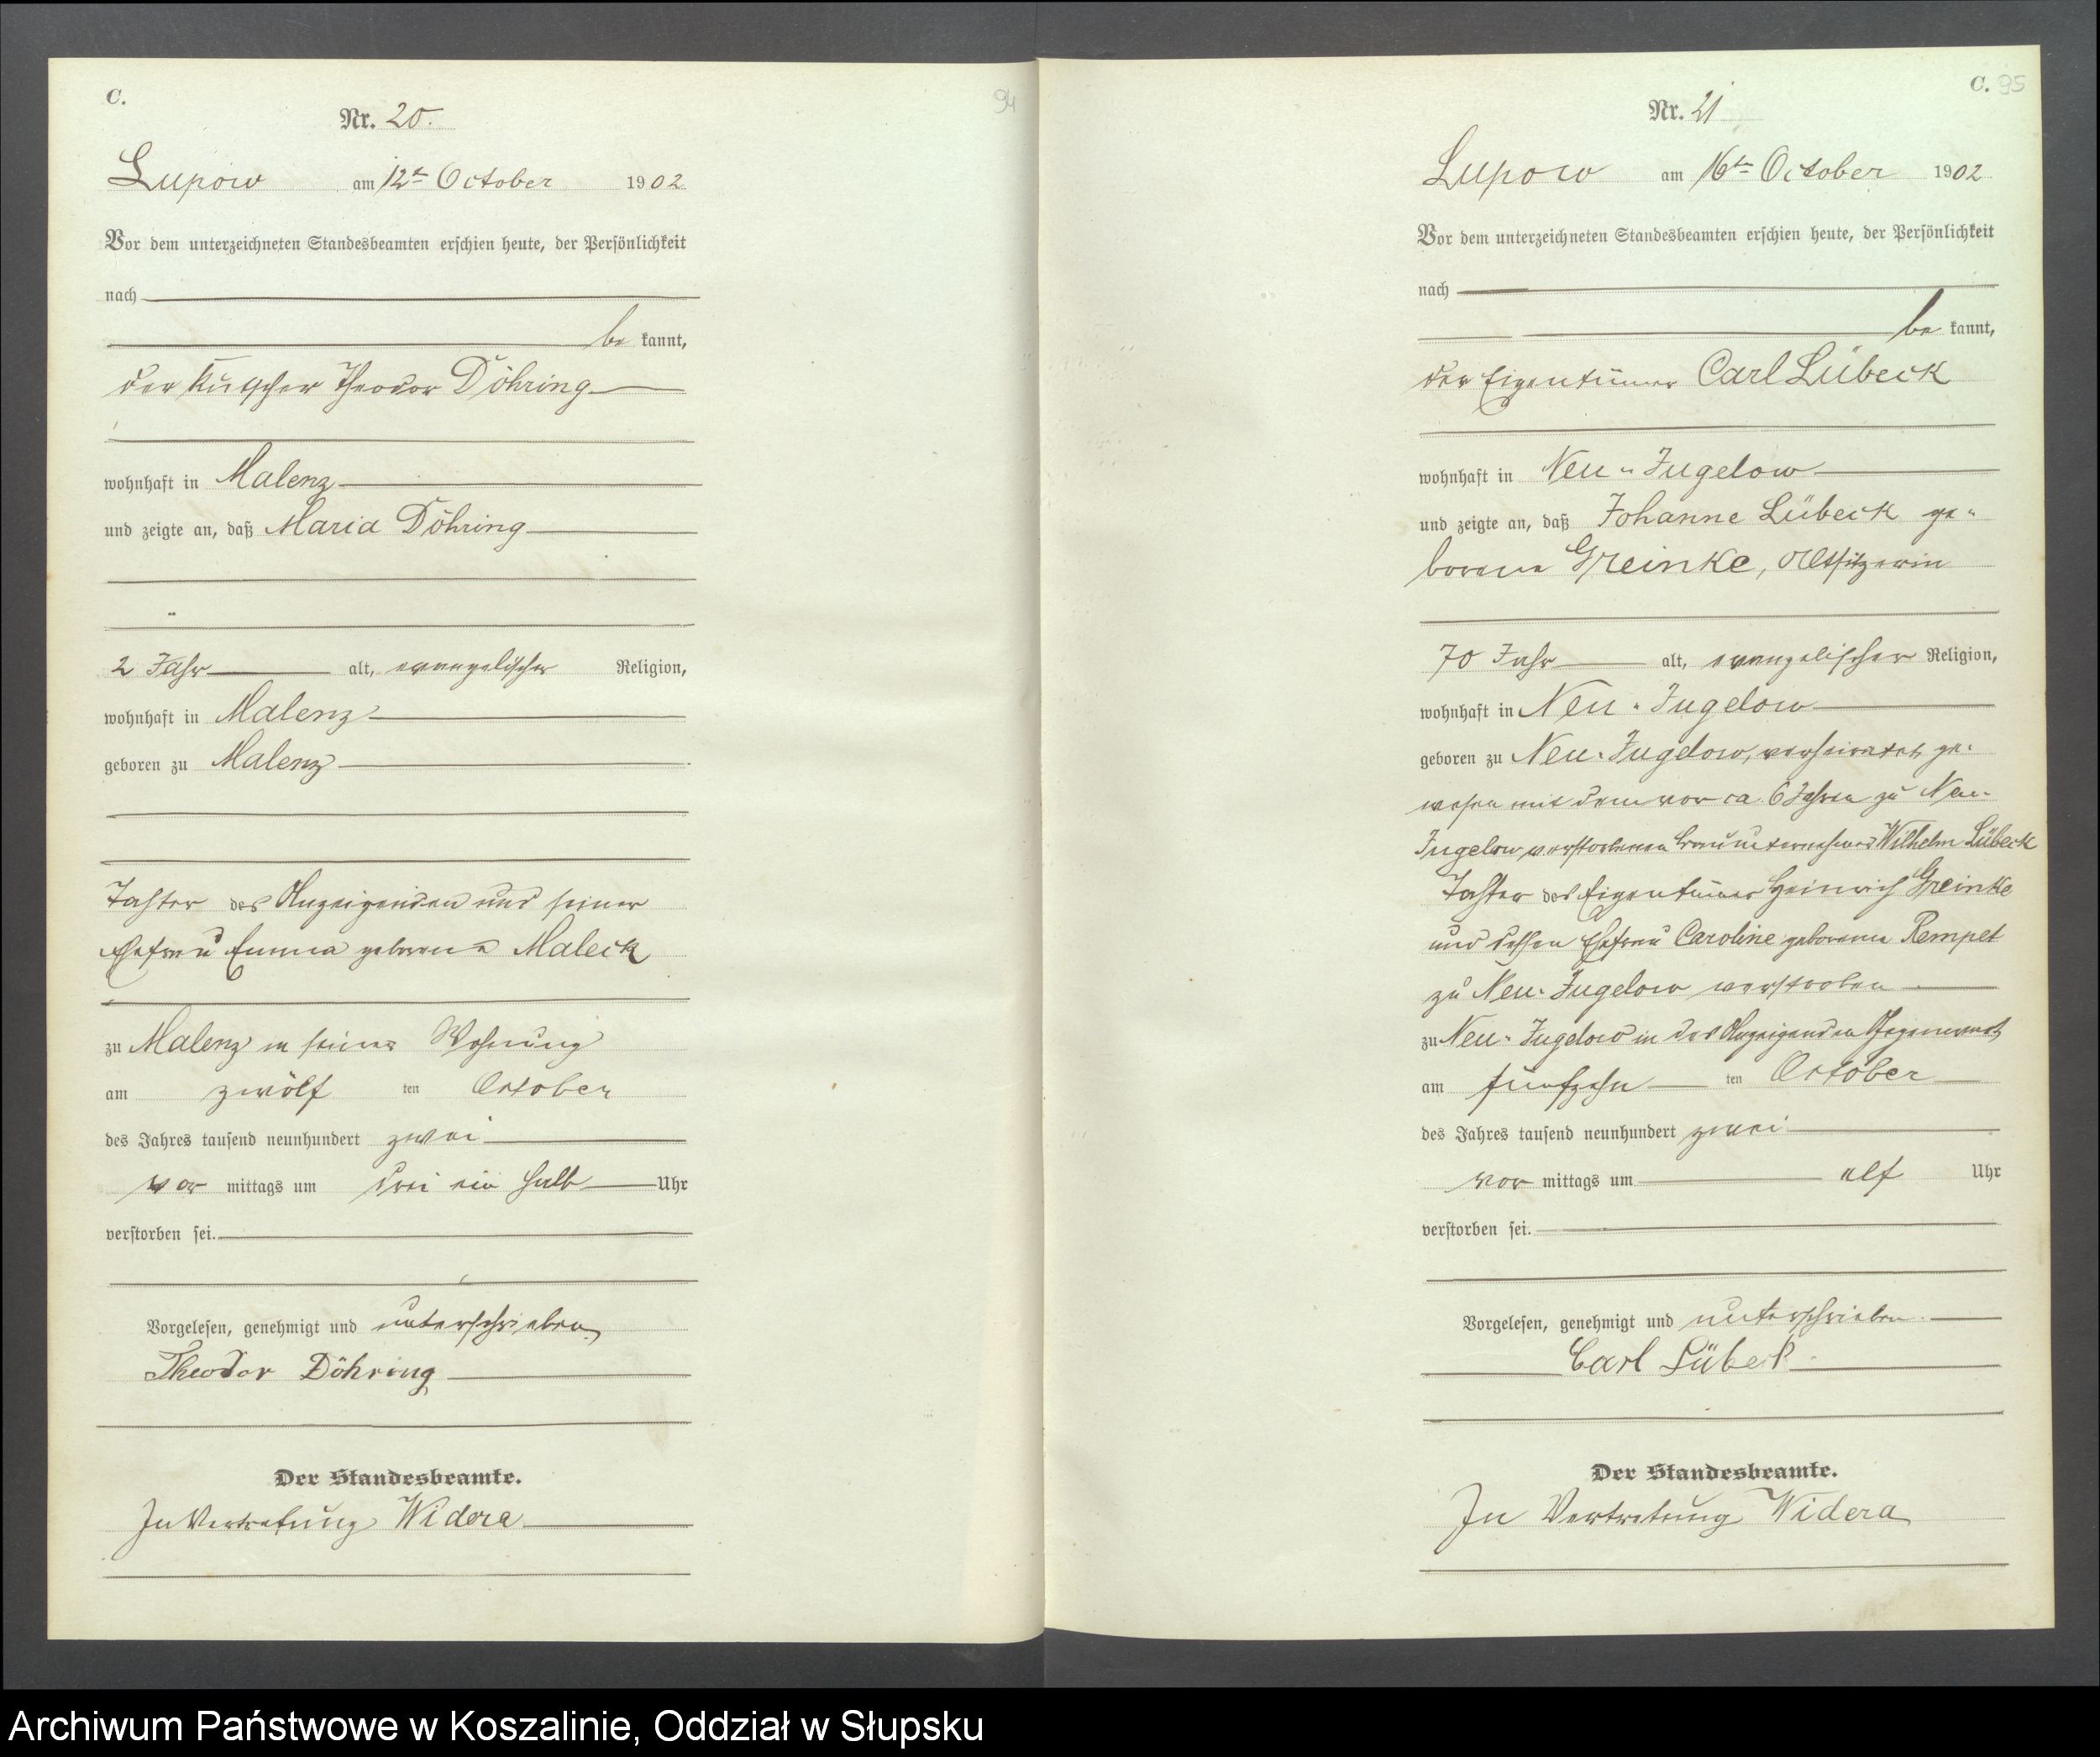 C.
94
Nr. 20.
Lupow am 12t October 1902
Vor dem unterzeichneten Standesbeamten erschien heute, der Persönlichkeit
nach
be kannt,
der Kutscher Theodor Döhring
wohnhaft in Malenz
und zeigte an, daß Maria Döhring
2 Jahr alt, evangelischer Religion,
wohnhaft in Malenz
geboren zu Malenz
Tochter des Anzeigenden und seiner
Ehefrau Emma geborene Maleck
zu Malenz in seiner Wohnung
am zwölf ten October
des Jahres tausend neunhundert zwei
vor mittags um drei ein halb Uhr
verstorben sei.
Vorgelesen, genehmigt und unterschrieben
Theodor Döhring
Der Standesbeamte.
In Vertretung Widera
C. 95
Nr. 21
Lupow am 16tn October 1902
Vor dem unterzeichneten Standesbeamten erschien heute, der Persönlichkeit
nach
be kannt,
der Eigentümer Carl Lübeck
wohnhaft in Neu-Jugelow
und zeigte an, daß Johanne Lübeck ge-
borene Greinke, Altsitzerin
70 Jahr alt, evangelischer Religion,
wohnhaft in Neu-Jugelow
geboren zu Neu-Jugelow, verheiratet ge-
wesen mit dem vor ca. 6 Jahren zu Neu-
Jugelow verstorbenen Wilhelm Lübeck
Tochter des Eigentümer Heinrich Greinke
und dessen Ehefrau Caroline geborene Rempel
zu Neu-Jugelow verstorben
zu Neu-Jugelow in des Anzeigenden Gegenwart
am fünfzehn ten October
des Jahres tausend neunhundert zwei
vor mittags um elf Uhr
verstorben sei.
Vorgelesen, genehmigt und unterschrieben.
Carl Lübeck
Der Standesbeamte.
In Vertretung Widera
Archiwum Państwowe w Koszalinie, Oddział w Słupsku